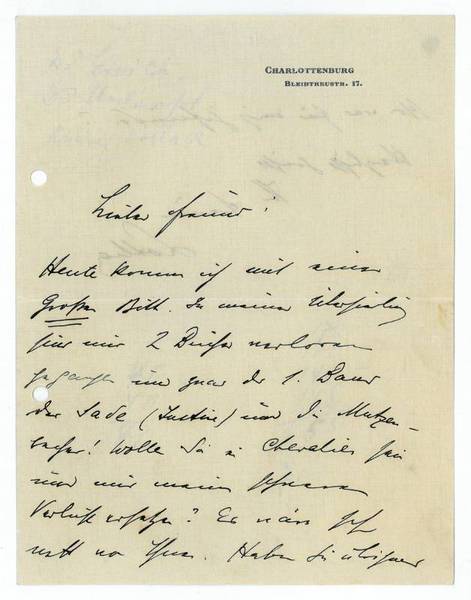 CHARLOTTENBURG
BLEIBTREUSTR. 17.
Lieber Freund!
Heute komme ich mit einer
Großen Bitte. In meiner Übersiedlung
sind mir 2 Bücher verloren
gegangen und zwar der 1. Band
der Sade (Justine) und die Mutzen-
bacher! Wollen Sie ein Chevalier sein
und mir meinen schweren
Verlust ersetzen? Es wäre sehr
nett von Ihnen. Haben Sie übrigens